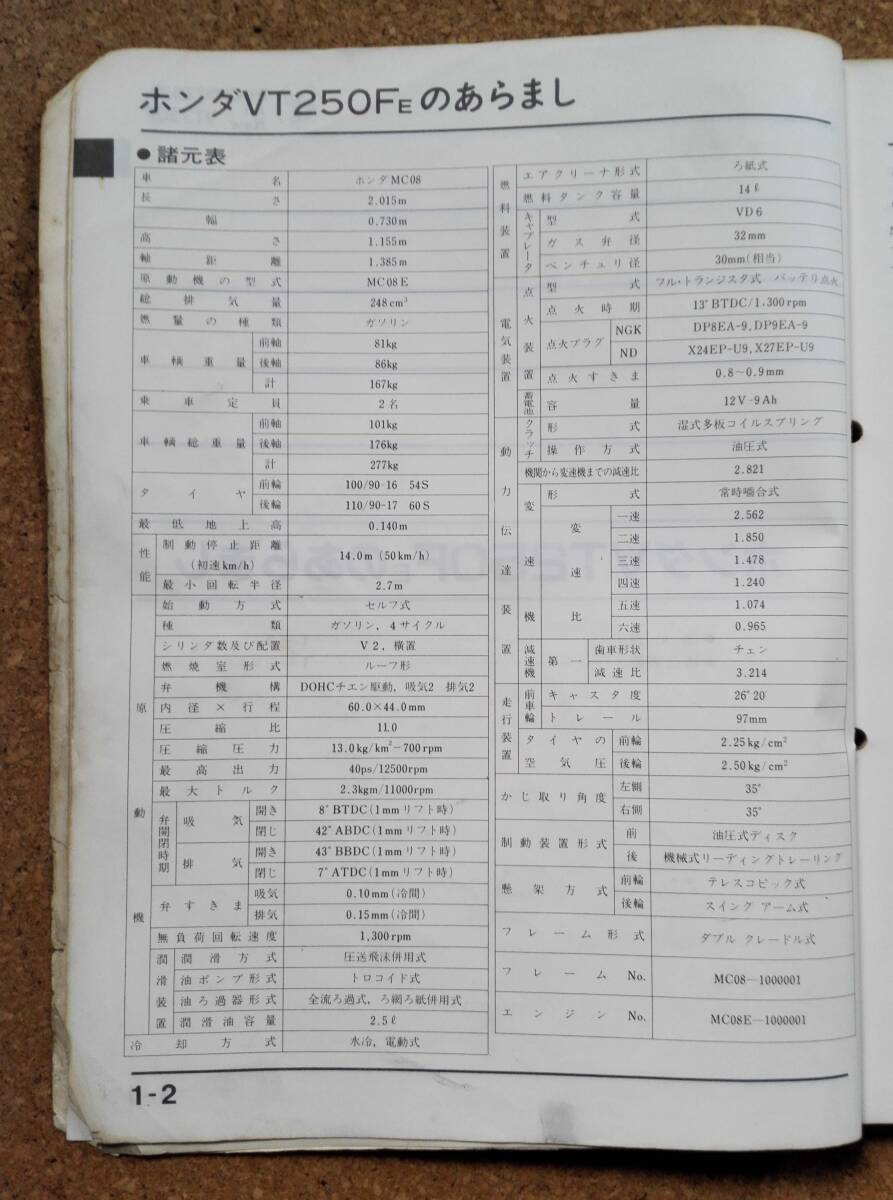 ホンダVT250FEのあらまし
●諸元表
車名 ホンダMC08
長さ 2.015m
幅 0.730m
高さ 1.155m
軸距離 1.385m
原動機の型式 MC08E
総排気量 248cm³
燃量の種類 ガソリン
車輌重量 前軸 81kg
後軸 86kg
計 167kg
乗車定員 2名
車輌総重量 前軸 101kg
後軸 176kg
計 277kg
タイヤ 前輪 100/90-16 54S
後輪 110/90-17 60S
最低地上高 0.140m
性能 制動停止距離(初速km/h) 14.0m(50km/h)
最小回転半径 2.7m
原動機 始動方式 セルフ式
種類 ガソリン，4サイクル
シリンダ数及び配置 V2，横置
燃焼室形式 ルーフ形
弁機構 DOHCチエン駆動，吸気2 排気2
内径×行程 60.0×44.0mm
圧縮比 11.0
圧縮圧力 13.0kg/km²-700rpm
最高出力 40ps/12500rpm
最大トルク 2.3kgm/11000rpm
弁開閉時期 吸気 開き 8°BTDC(1mmリフト時)
閉じ 42°ABDC(1mmリフト時)
排気 開き 43°BBDC(1mmリフト時)
閉じ 7°ATDC(1mmリフト時)
弁すきま 吸気 0.10mm(冷間)
排気 0.15mm(冷間)
無負荷回転速度 1,300rpm
潤滑装置 潤滑方式 圧送飛沫併用式
油ポンプ形式 トロコイド式
油ろ過器形式 全流ろ過式，ろ網ろ紙併用式
潤滑油容量 2.5ℓ
冷却方式 水冷，電動式
燃料装置 エアクリーナ形式 ろ紙式
燃料タンク容量 14ℓ
キャブレータ 型式 VD6
ガス弁径 32mm
ベンチュリ径 30mm(相当)
電気装置 点火装置 型式 フル・トランジスタ式 バッテリ点火
点火時期 13°BTDC/1,300rpm
点火プラグ NGK DP8EA-9,DP9EA-9
ND X24EP-U9,X27EP-U9
点火すきま 0.8～0.9mm
蓄電池 容量 12V-9Ah
動力伝達装置 クラッチ 形式 湿式多板コイルスプリング
操作方式 油圧式
機関から変速機までの減速比 2.821
変速機 形式 常時嚙合式
変速比 一速 2.562
二速 1.850
三速 1.478
四速 1.240
五速 1.074
六速 0.965
減速機 第一 歯車形状 チェン
減速比 3.214
走行装置 前車輪 キャスタ度 26°20′
トレール 97mm
タイヤの空気圧 前輪 2.25kg/cm²
後輪 2.50kg/cm²
かじ取り角度 左側 35°
右側 35°
制動装置形式 前 油圧式ディスク
後 機械式リーディングトレーリング
懸架方式 前輪 テレスコピック式
後輪 スイング アーム式
フレーム形式 ダブル クレードル式
フレームNo. MC08―1000001
エンジンNo. MC08E―1000001
1-2